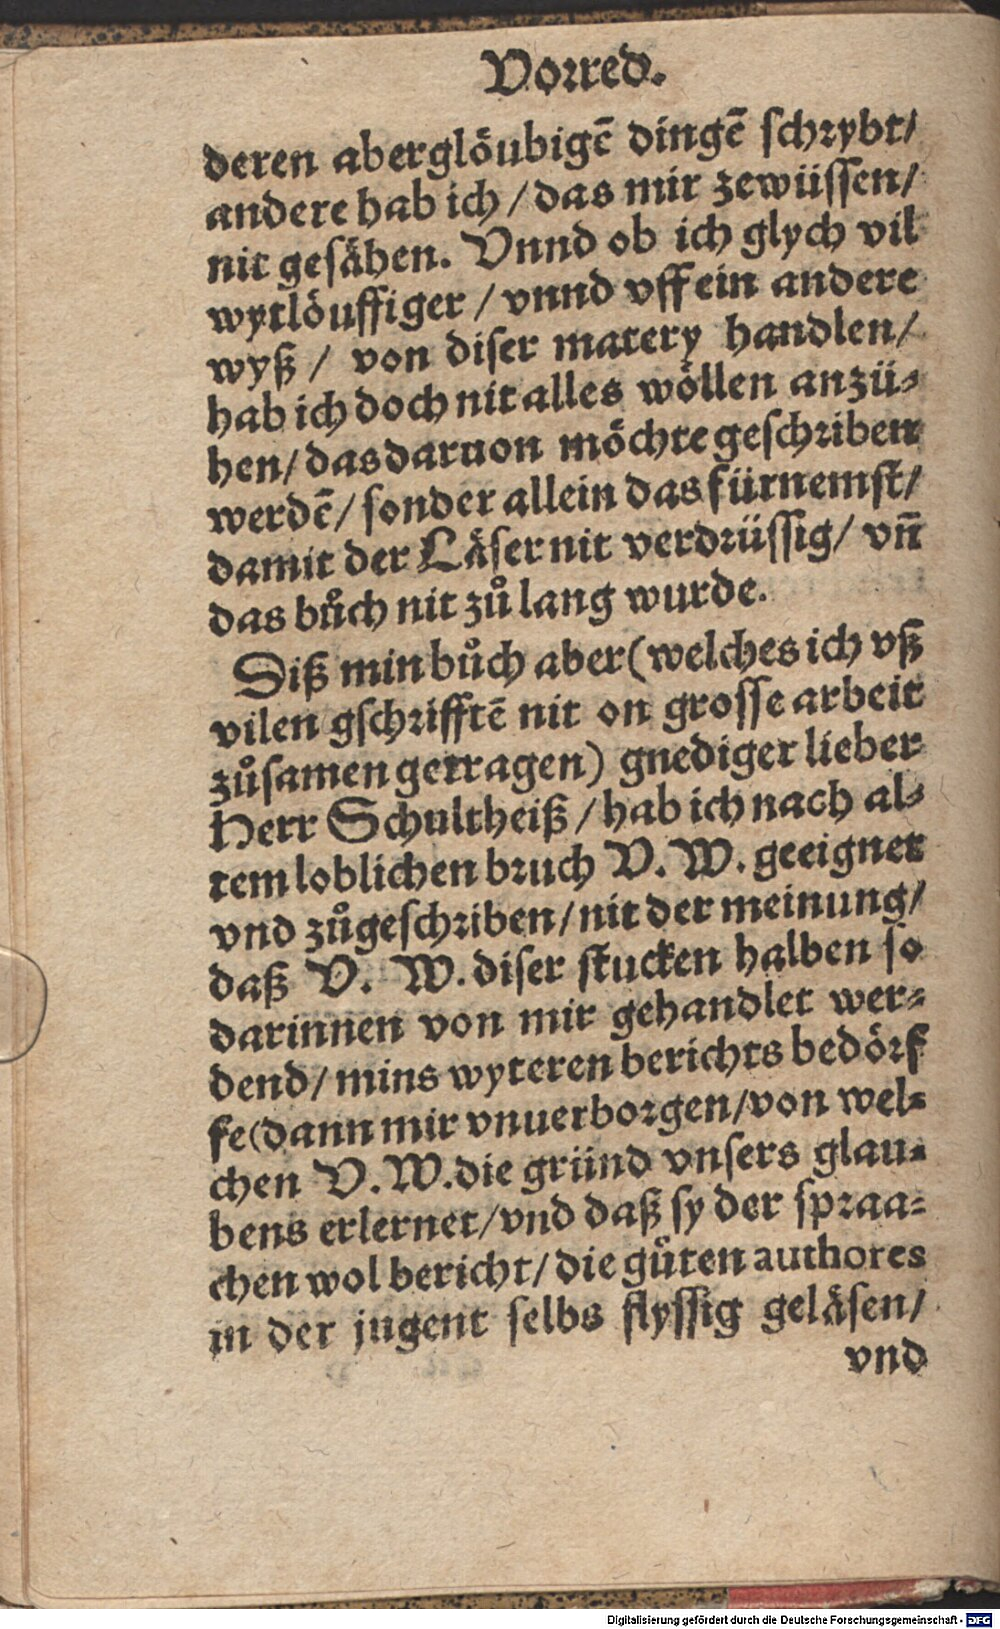 Vorred.
deren aberglöubigē dingē schrybt/
andere hab ich / das mir zewüssen/
nit gesähen. Vnnd ob ich glych vil
wytlöuffiger / vnnd vff ein andere
wyß / von diser matery handlen/
hab ich doch nit alles wöllen anzü⸗
hen/ das daruon möchte geschriben
werdē/ sonder allein das fürnemst/
damit der Läser nit verdrüssig/ vn̄
das bůch nit zů lang wurde.
Diß min bůch aber (welches ich vß
vilen gschrifftē nit on grosse arbeit
zůsamen getragen) gnediger lieber
Herr Schultheiß / hab ich nach al⸗
tem loblichen bruch V. W. geeignet
vnd zůgeschriben/ nit der meinung/
daß V. W. diser stucken halben so
darinnen von mir gehandlet wer⸗
dend/ mins wyteren berichts bedörf
fe (dann mir vnuerborgen/ von wel⸗
chen V. W. die gründ vnsers glau⸗
bens erlernet/ vnd daß sy der spraa⸗
chen wol bericht/ die gůten authores
in der jugent selbs flyssig geläsen/
vnd
Digitalisierung gefördert durch die Deutsche Forschungsgemeinschaft - DFG